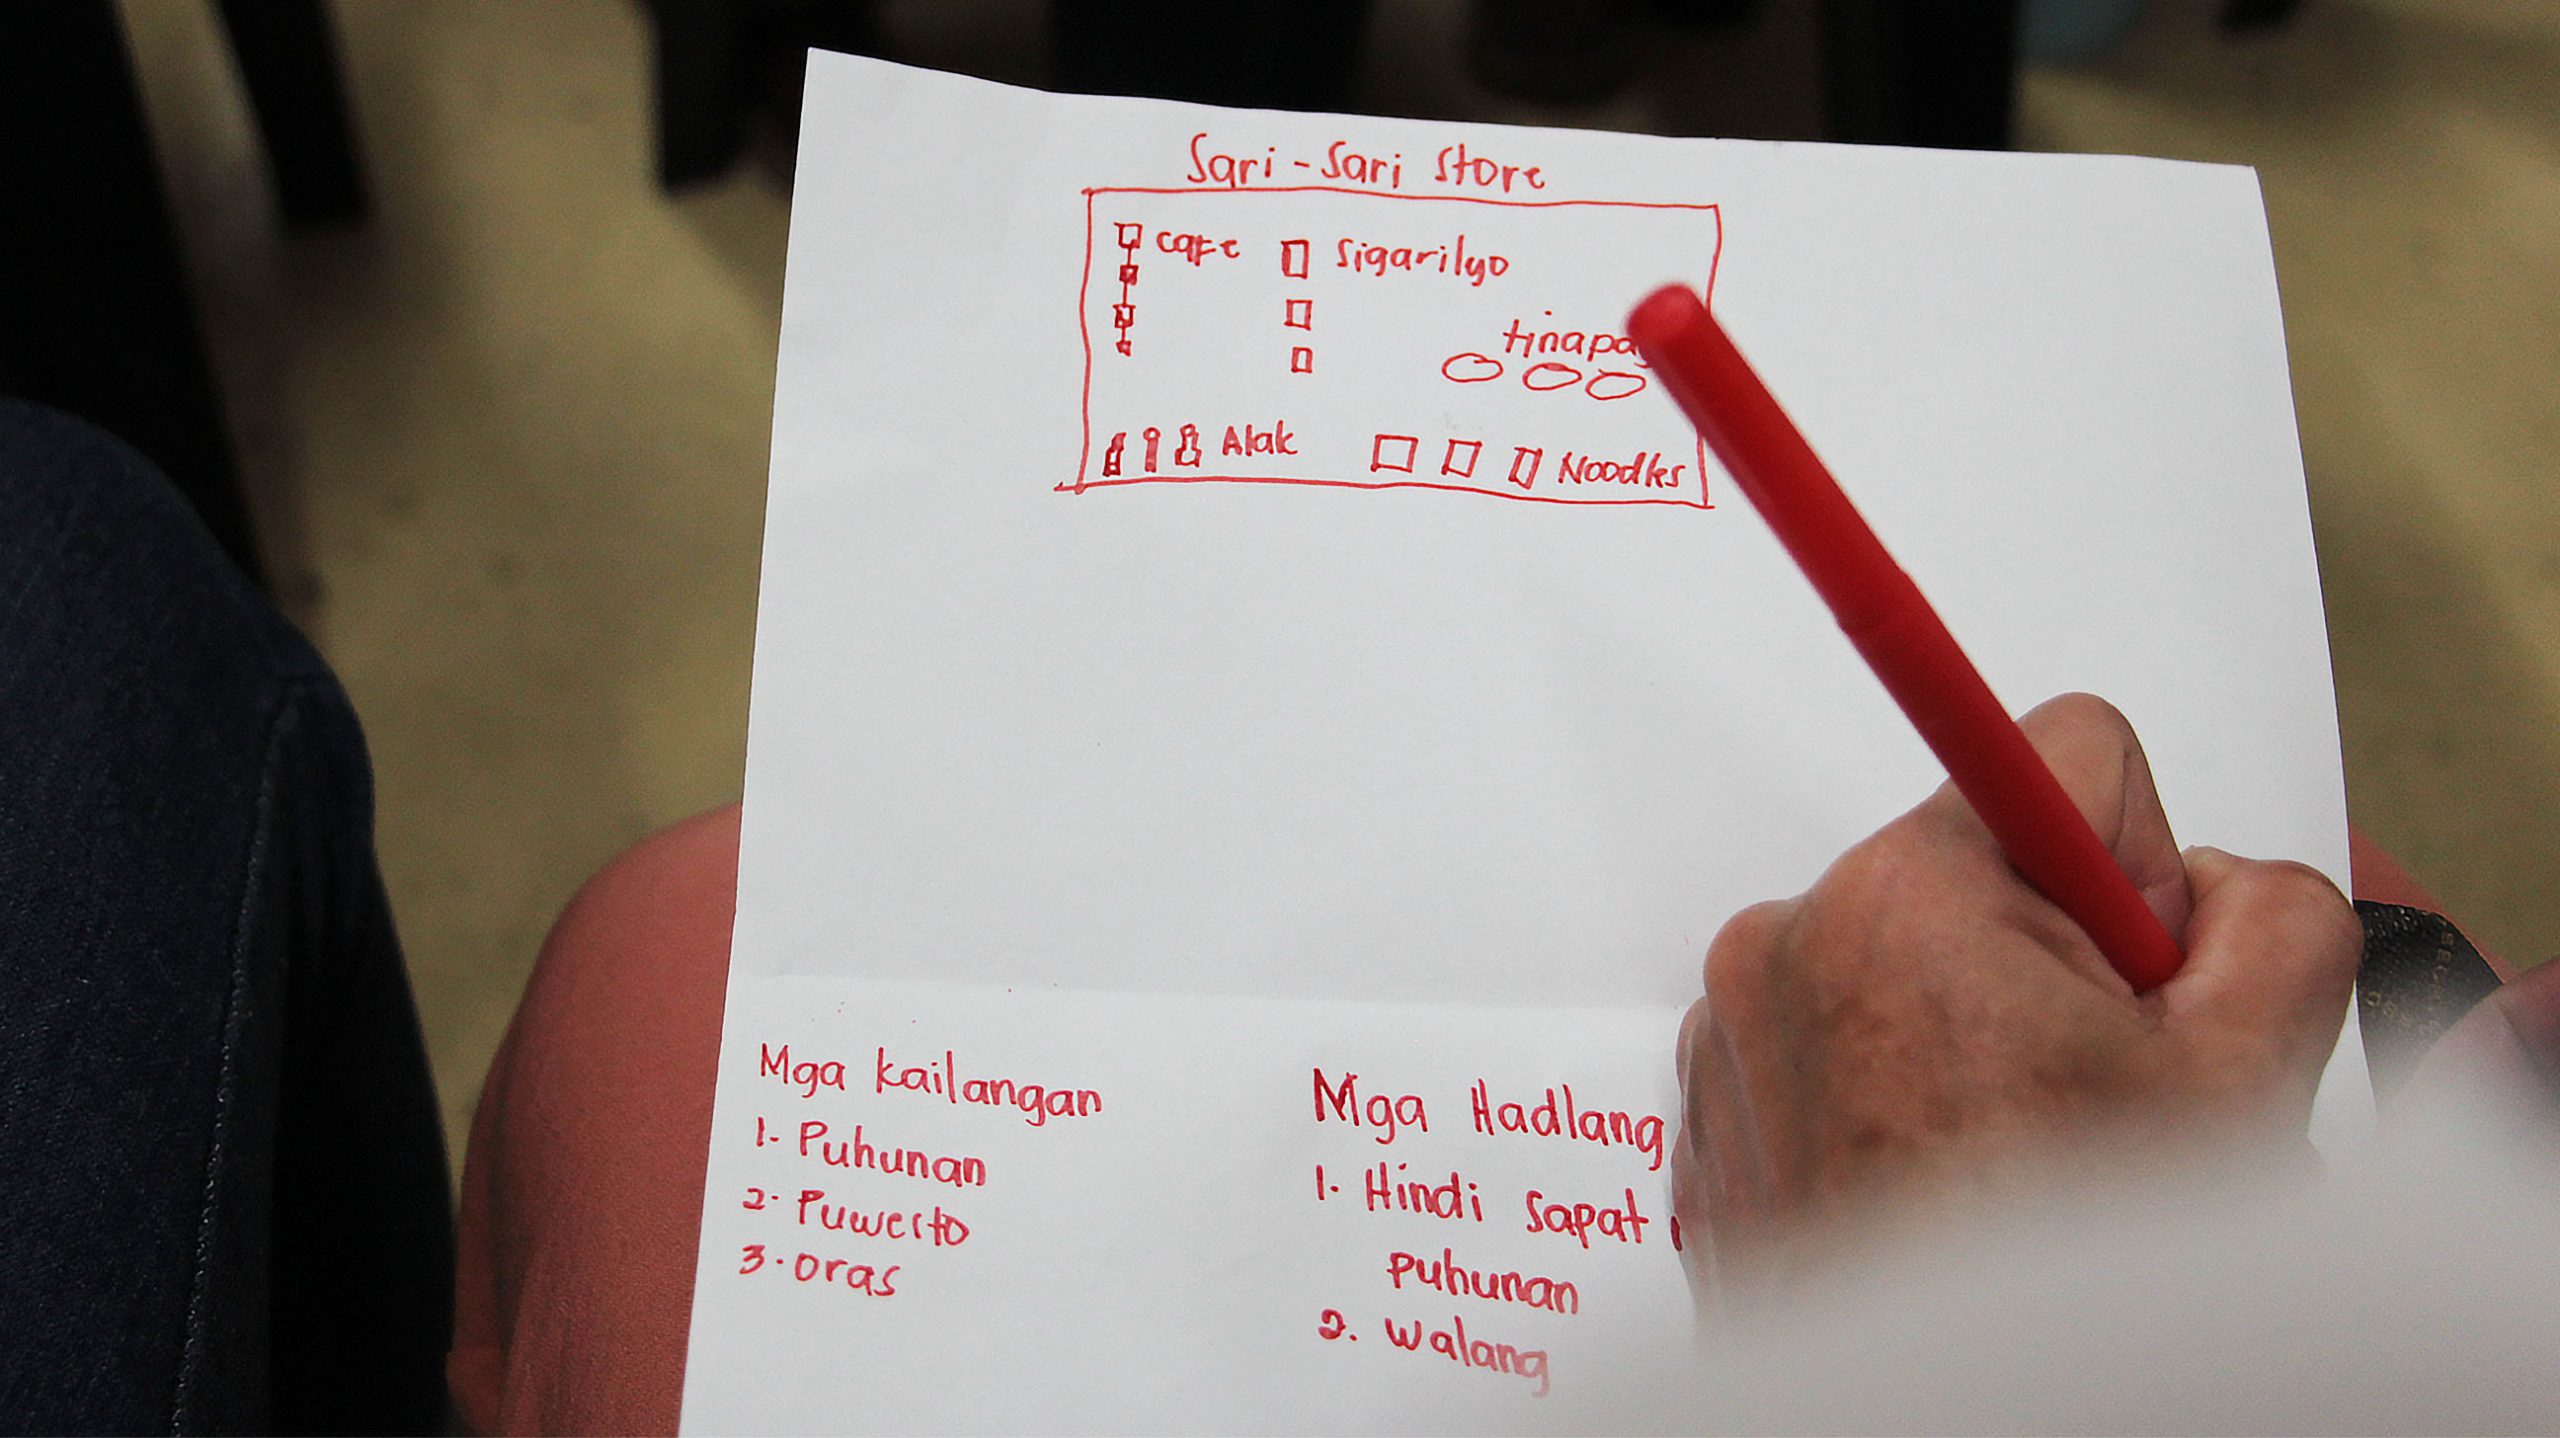 Sari-Sari Store
cafe
Sigarilyo
Alak
Noodles
Mga kailangan
1. Puhunan
2. Puwesto
3. oras
Mga Hadlang
1. Hindi sapat
puhunan
2. walang